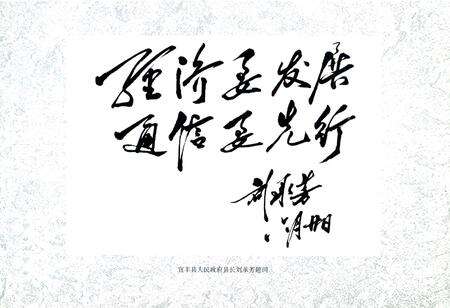 经济要发展
通信要先行
宜丰县人民政府县长刘承芳题词